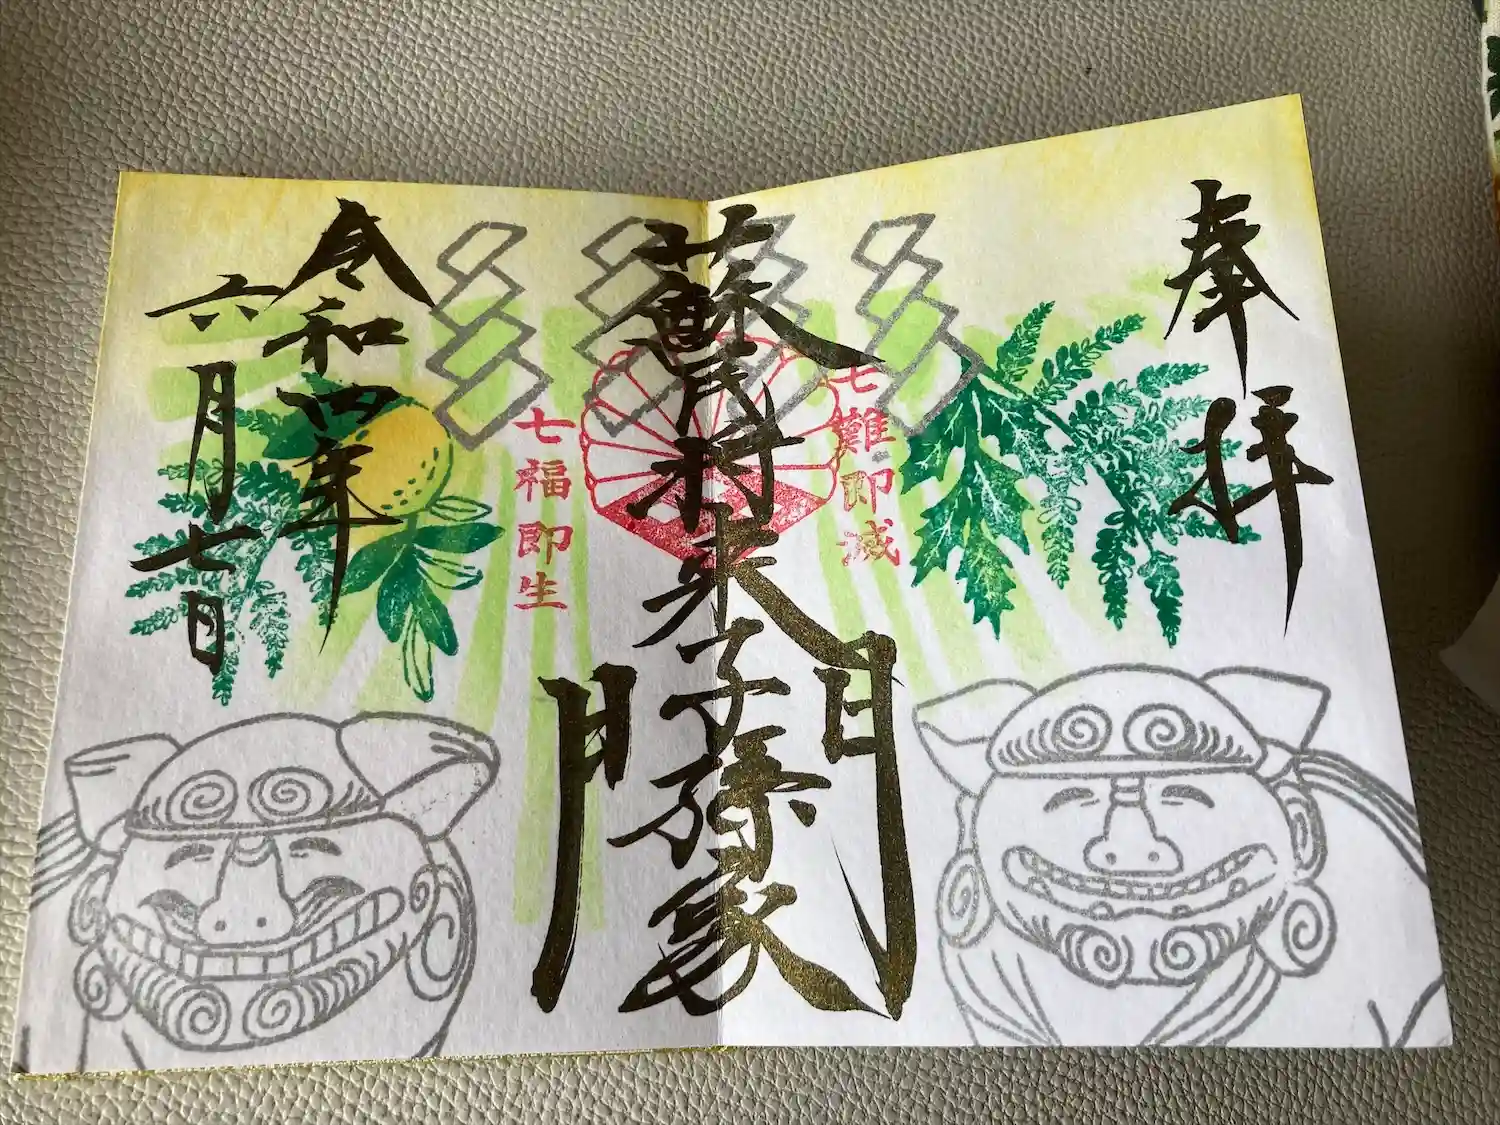 奉拝
七難即滅
蘇民将来子孫家門
七福即生
令和四年
六月七日